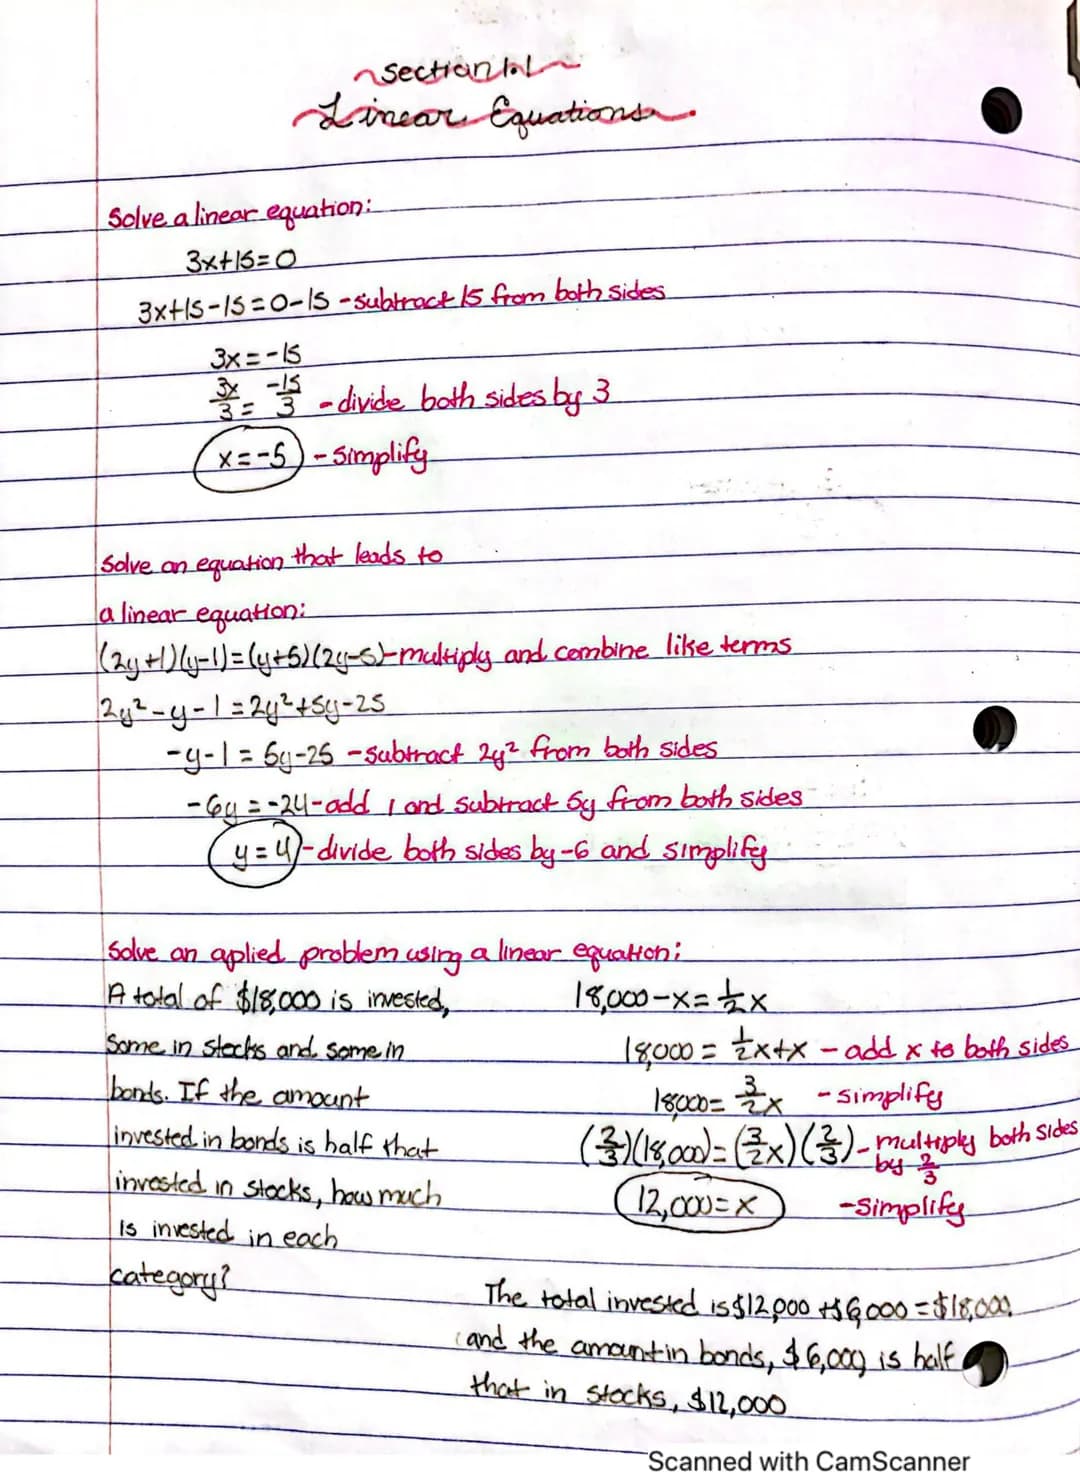 Section 1.1
Linear Equations.
Solve a linear equation:
3x+15=0
3x+15-15=0-15 -subtract 15 from both sides
3x=-15
3x/3 = -15/3 -divide both sides by 3
x=-5 -simplify
Solve an equation that leads to
a linear equation:
(2y+1)(y-1)=(y+5)(2y-5)-multiply and combine like terms
2y²-y-1=2y²+5y-25
-y-1=5y-25 -subtract 2y² from both sides
-6y=-24-add 1 and subtract 5y from both sides
y=4 -divide both sides by -6 and simplify
Solve an aplied problem using a linear equation:
A total of $18,000 is invested,
some in stocks and some in
bonds. If the amount
invested in bonds is half that
invested in stocks, how much
is invested in each
category?
18,000-x=½x
18,000=½x+x -add x to both sides
18000=3/2x -simplify
(2/3)(18,000)=(3/2x)(2/3)-multiply both sides
by 2/3
12,000=x -simplify
The total invested is $12,000+$6,000=$18,000
and the amount in bonds, $6,000 is half
that in stocks, $12,000
Scanned with CamScanner